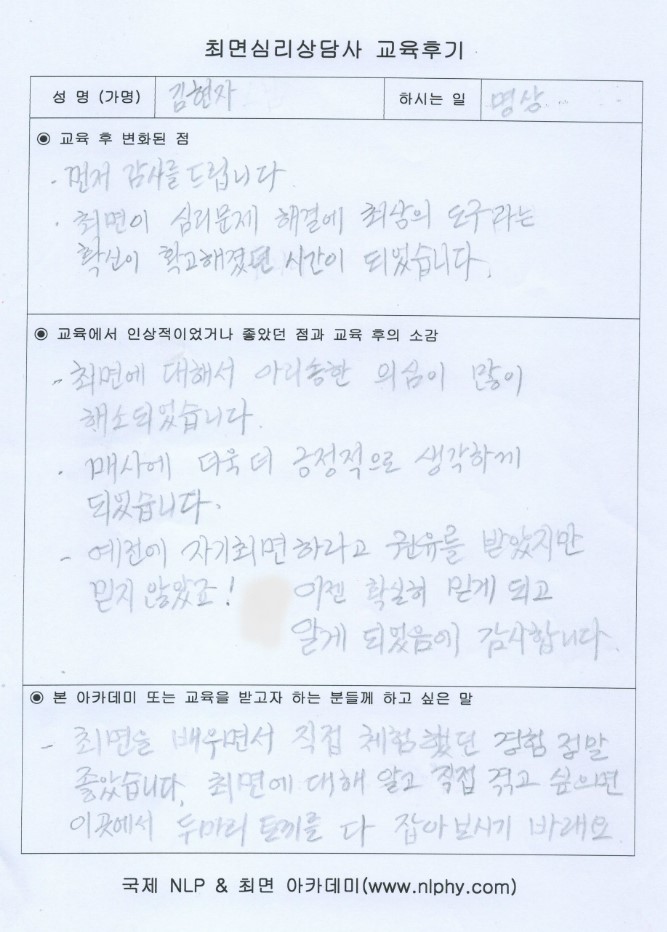 최면심리상담사 교육후기
성 명 (가명) 김현자 하시는 일 명상
◉ 교육 후 변화된 점
- 먼저 감사를 드립니다
· 최면이 심리문제 해결에 최상의 도구라는
확신이 확고해졌던 시간이 되었습니다.
◉ 교육에서 인상적이었거나 좋았던 점과 교육 후의 소감
- 최면에 대해서 아리송한 의심이 많이
해소되었습니다.
· 매사에 더욱 더 긍정적으로 생각하게
되었습니다.
- 예전에 자기최면하라고 권유를 받았지만
믿지 않았죠! 이젠 확실히 믿게 되고
알게 되었음에 감사합니다.
◉ 본 아카데미 또는 교육을 받고자 하는 분들께 하고 싶은 말
- 최면을 배우면서 직접 체험했던 경험 정말
좋았습니다. 최면에 대해 알고 직접 겪고 싶으면
이곳에서 두마리 토끼를 다 잡아보시기 바래요
국제 NLP & 최면 아카데미(www.nlphy.com)